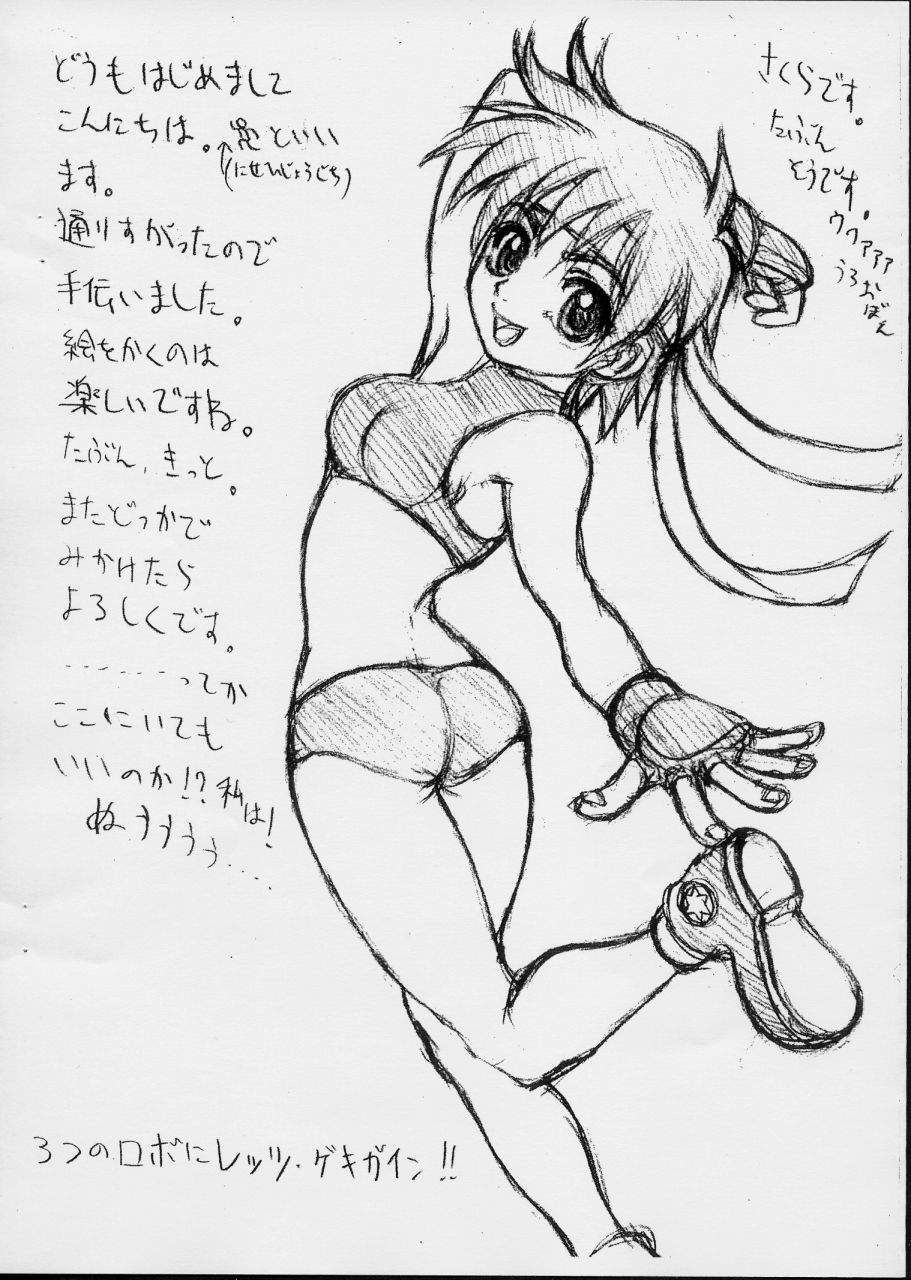 どうもはじめまして
こんにちは。といい
(にせいんじょうじち)
ます。
通りすがったので
手伝いました。
絵をかくのは
楽しいですね。
たぶん、きっと。
またどっかで
みかけたら
よろしくです。
……ってか
ここにいても
いいのか!?私は!
ぬぅぅぅぅ…
さくらです。
たぶん
そうです。
ウワァァァ
うろおぼえ
3つのロボにレッツ・ゲキガイン!!